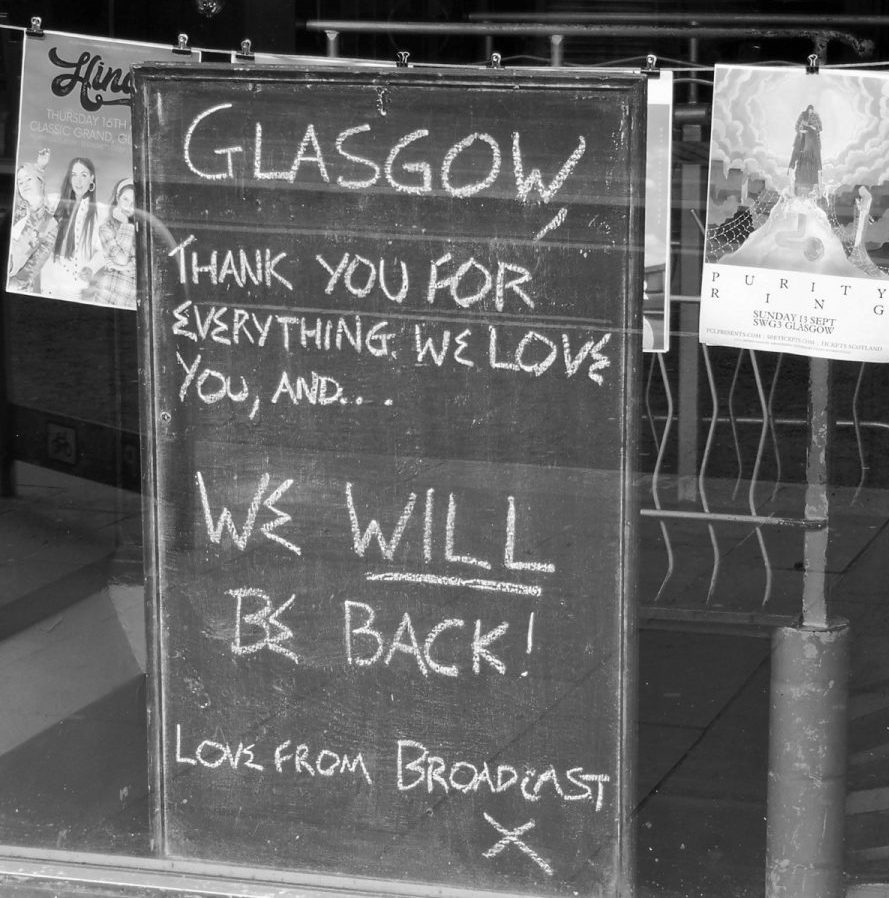 GLASGOW,
THANK YOU FOR
EVERYTHING. WE LOVE
YOU, AND...
WE WILL
BE BACK!
LOVE FROM BROADCAST
X
THURSDAY 16TH
CLASSIC GRAND, G
PURITY
RING
SUNDAY 13 SEPT
SWG3 GLASGOW
PCLPRESENTS.COM | SEETICKETS.COM | TICKETS SCOTLAND